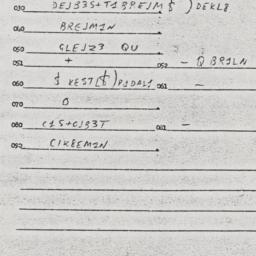 030 DEJ33S+T1BREJM $ ) DEKL8
040 BREJM1N
050 GLEJZ3 QU
051 + 052 - Q BR1LN
060 $ KEST($)P1DAL1 061 -
070 O
080 C1S+CJ33T 081 -
090 C1K8EM1N